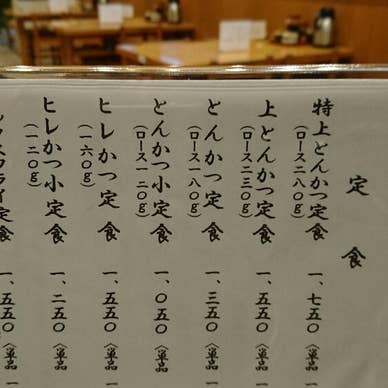 定食
特上とんかつ定食
(ロース二八〇g)
一、七五〇〈単品
上とんかつ定食
(ロース二三〇g)
一、五五〇〈単品 一
とんかつ定食
(ロース一八〇g)
一、三五〇〈単品 一
とんかつ小定食
(ロース一二〇g)
一、〇五〇〈単品
ヒレかつ定食
(一六〇g)
一、五五〇〈単品 一
ヒレかつ小定食
(一二〇g)
一、二五〇〈単品 一
フライ定食
一、五五〇